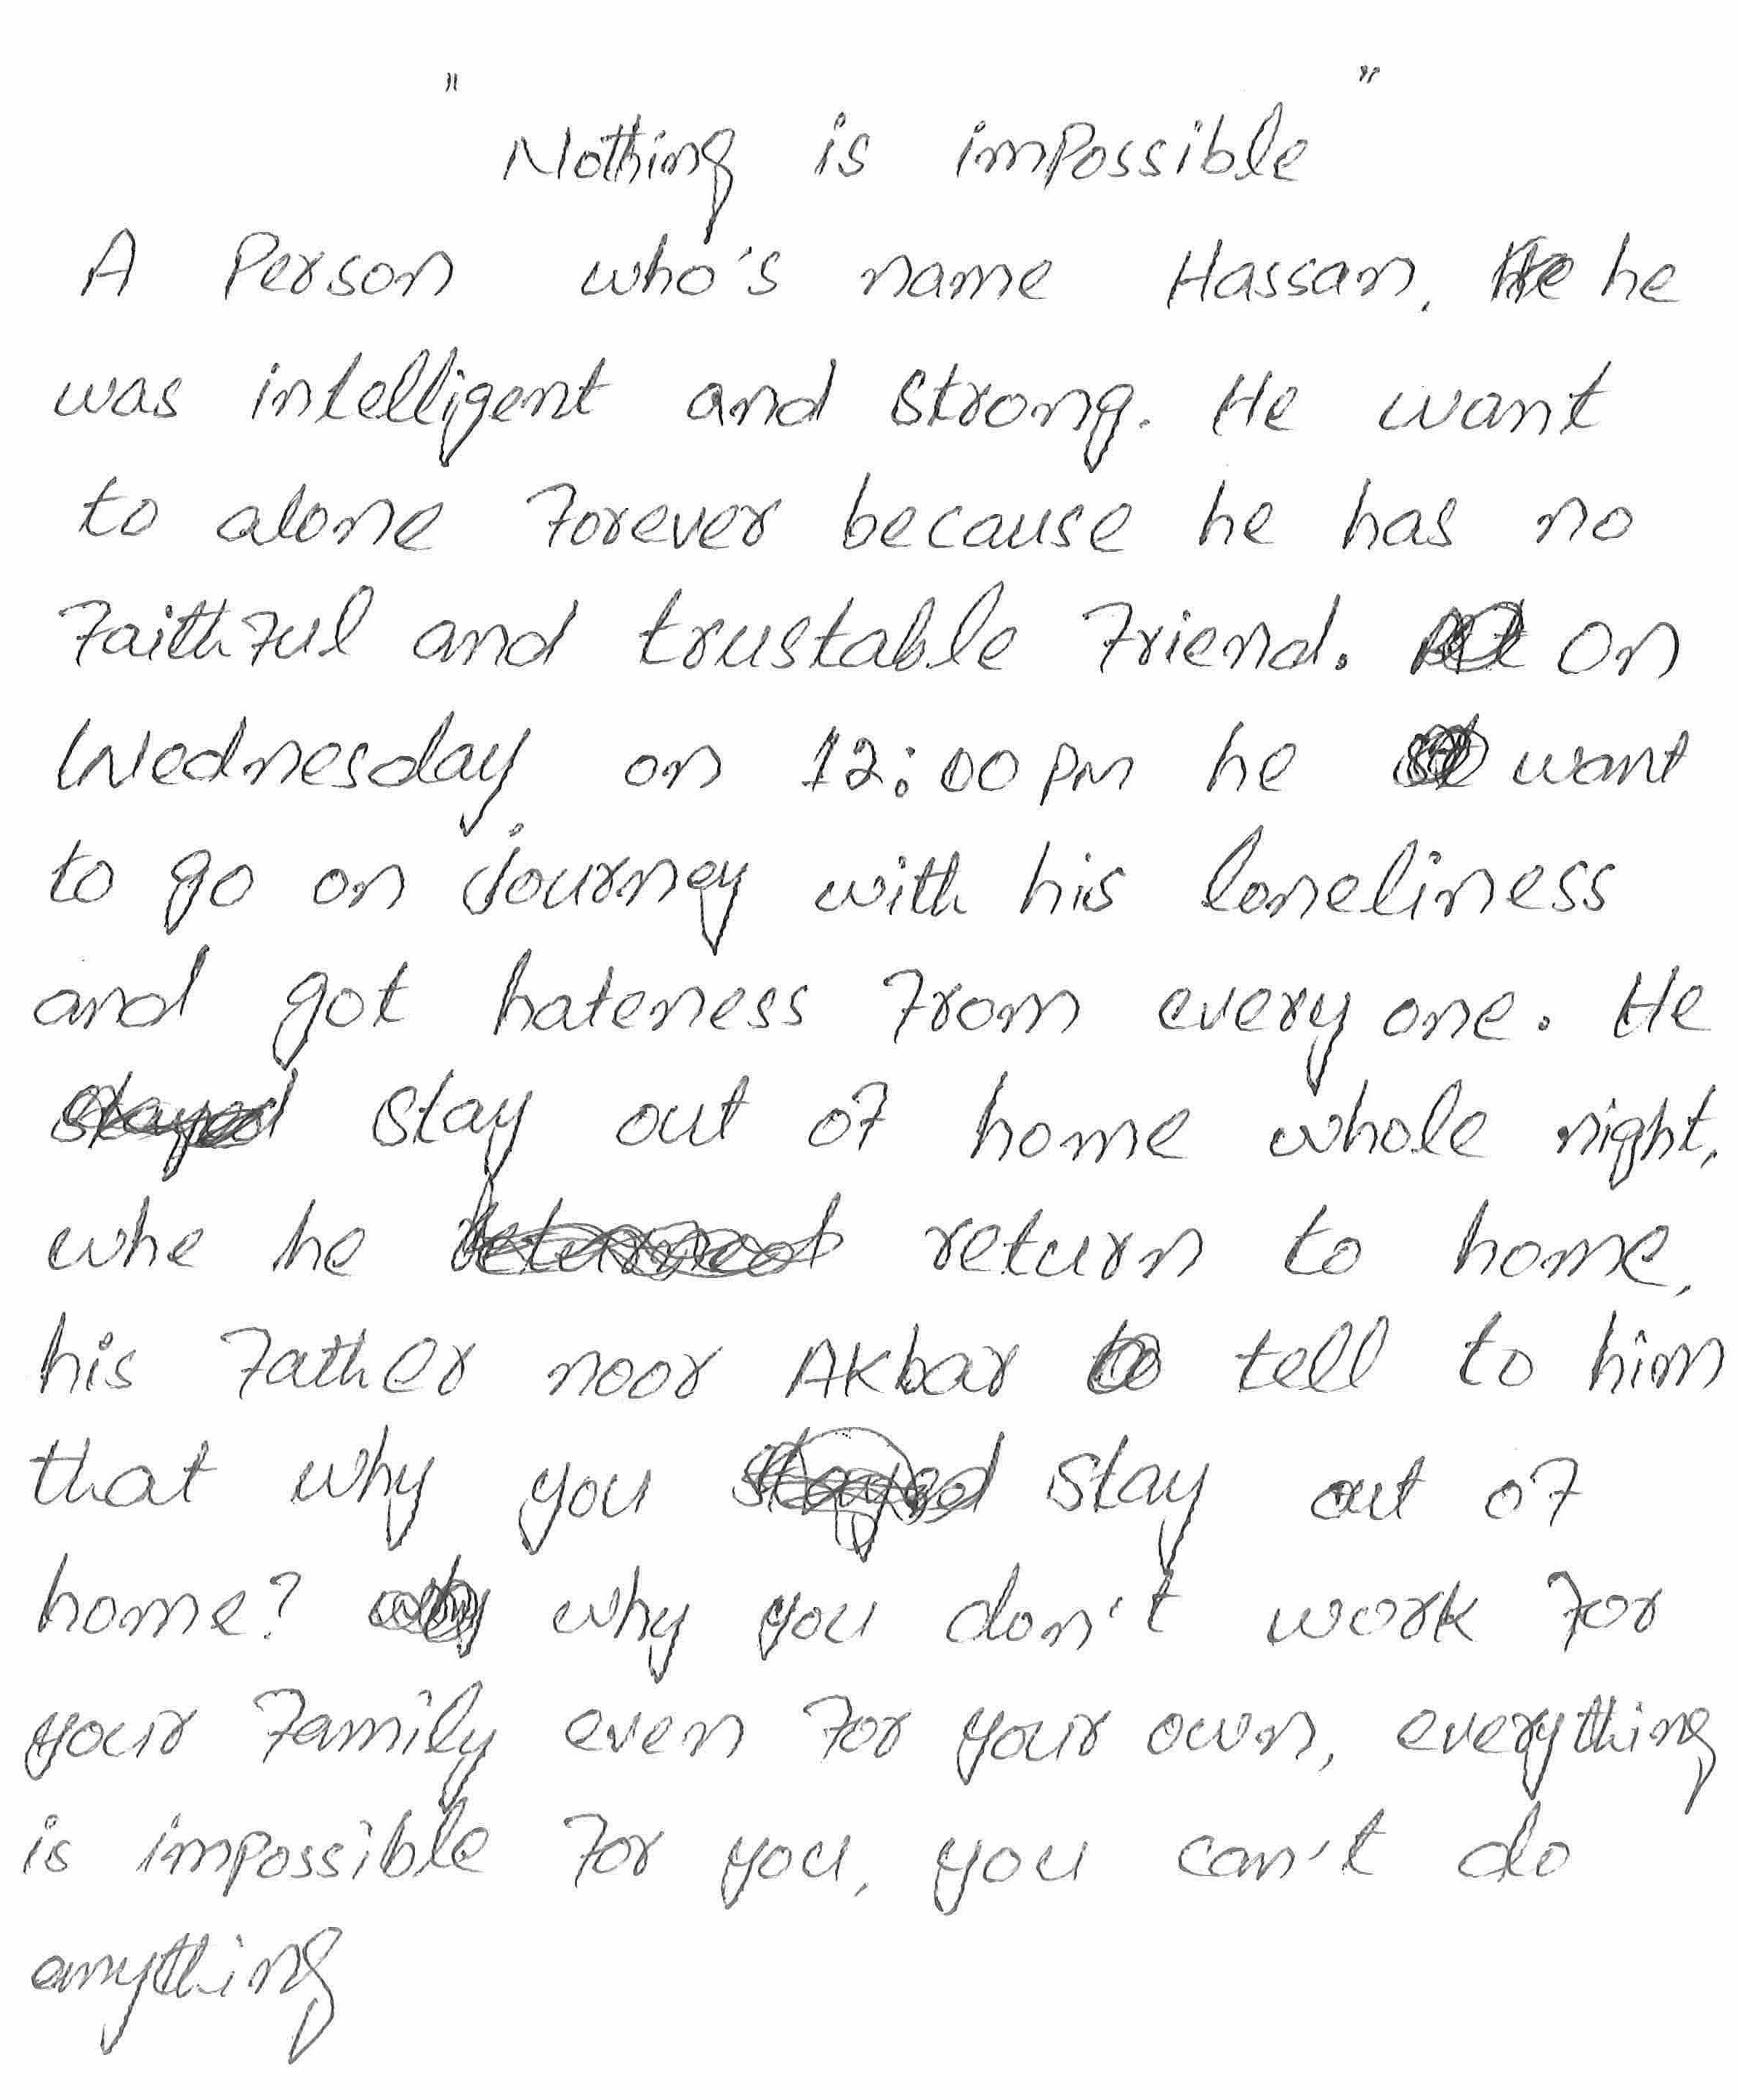 " Nothing is impossible "
A Person who's name Hassan. he
was intelligent and strong. He want
to alone forever because he has no
Faithful and trustable Friend. on
Wednesday on 12:00 PM he want
to go on journey with his loneliness
and got hateness from every one. He
stay out of home whole night,
whe he return to home,
his Father noor Akbar tell to him
that why you stay out of
home? why you don't work for
your Family even for your own, everything
is impossible for you, you can't do
anything